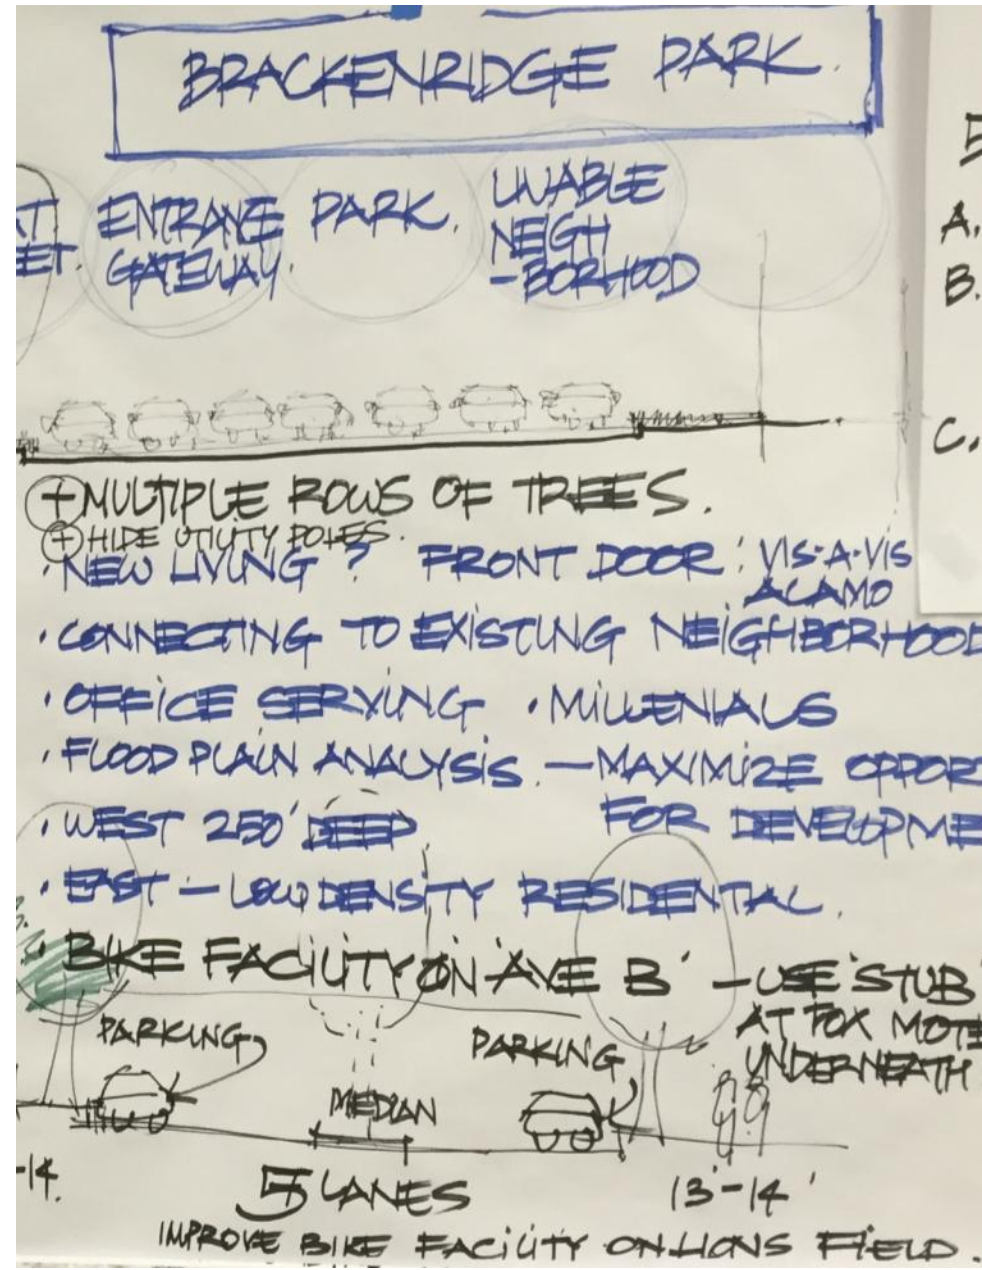 BRACKENRIDGE PARK.
ENTRANCE PARK. LIVABLE
GATEWAY. NEIGH
-BORHOOD
A.
B.
C.
+ MULTIPLE ROWS OF TREES.
+ HIDE UTILITY POLES.
· NEW LIVING ? FRONT DOOR : VIS-A-VIS
ALAMO
· CONNECTING TO EXISTING NEIGHBORHOOD
· OFFICE SERVING · MILLENIALS
· FLOOD PLAIN ANALYSIS. — MAXIMIZE OPPOR
FOR DEVELOPME
· WEST 250' DEEP
· EAST — LOW DENSITY RESIDENTIAL.
· BIKE FACILITY ON 'AVE B' — USE 'STUB
AT FOX MOTE
UNDERNEATH
PARKING
PARKING
MEDIAN
-14.
5 LANES
13'-14'
IMPROVE BIKE FACILITY ON LIONS FIELD.